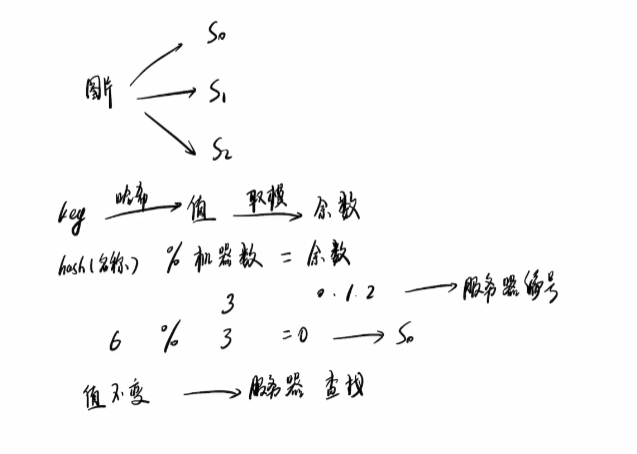 S₀
图片 → S₁
S₂
key 哈希→ 值 取模→ 余数
hash(名称) % 机器数 = 余数
3 0.1.2 → 服务器编号
6 % 3 =0 → S₀
值不变 → 服务器 查找